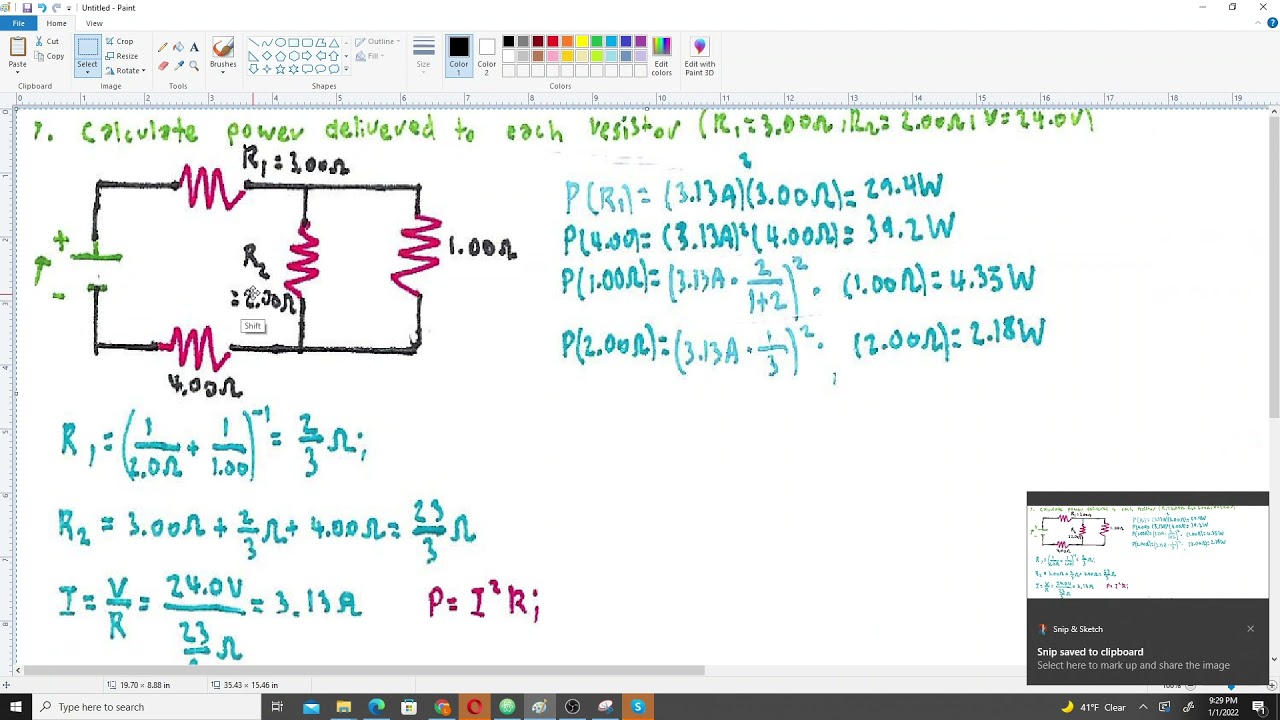 Untitled - Paint
File Home View
Paste
Cut
Copy
Clipboard
Select
Crop
Resize
Rotate
Image
Tools
Brushes
Outline
Fill
Shapes
Size
Color 1
Color 2
Colors
Edit colors
Edit with Paint 3D
0 1 2 3 4 5 6 7 8 9 10 11 12 13 14 15 16 17 18 19
7. Calculate power delivered to each resistor (R₁=3.00Ω, R₂=2.00Ω, V=24.0V)
R₁=3.00Ω
+
-
R₂
=2.00Ω
1.00Ω
4.00Ω
Shift
P(R₁)=(3.13A)²(3.00Ω)=29.4W
P(4.00)=(3.13A)²(4.00Ω)=39.2W
P(1.00Ω)=(3.13A·2/(1+2))²·(1.00Ω)=4.35W
P(2.00Ω)=(3.13A·1/3)²·(2.00Ω)=2.18W
R₁=(1/2.0Ω+1/1.00)⁻¹=2/3Ω;
R₂=3.00Ω+2/3Ω+4.00Ω=23/3Ω
I=V/R=24.0V/(23/3Ω)=3.13A
P=I²R;
Snip & Sketch
Snip saved to clipboard
Select here to mark up and share the image
19.70 × 8.88 in
35.43 × 15.46 in
100%
Type here to search
41°F Clear
9:29 PM
1/1/2022